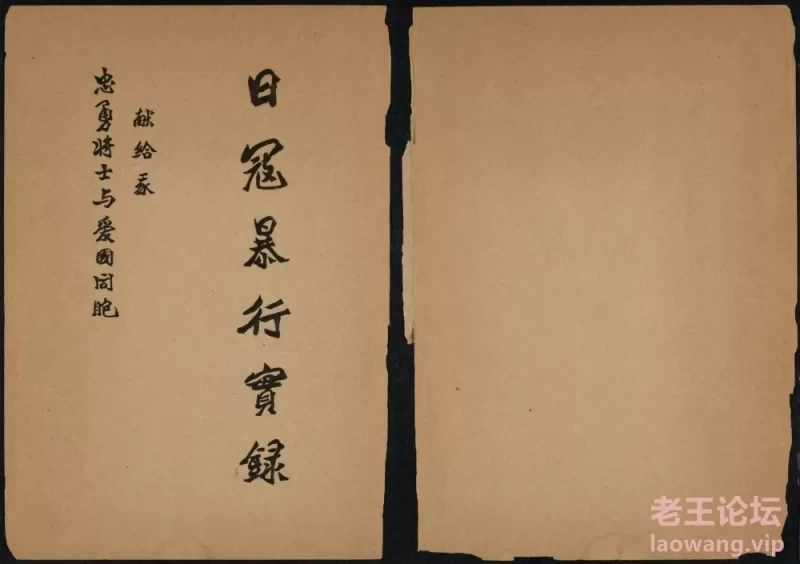 日寇暴行實録
献给我
忠勇將士与爱國同胞
老王论坛
laowang.vip